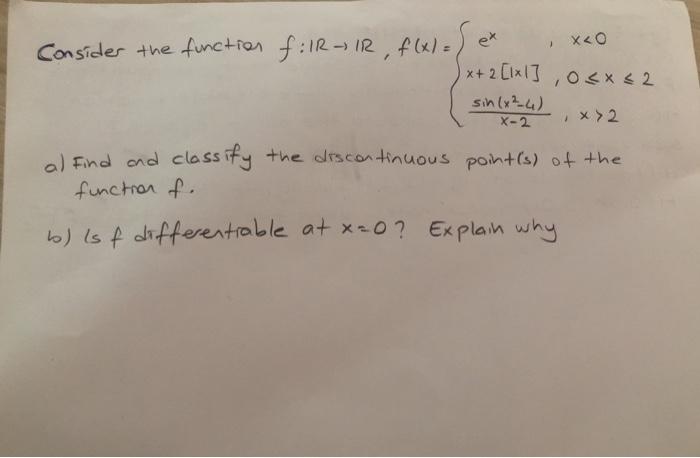 Consider the function f: IR → IR, f(x) = { e^x , x<0
x+2[|x|] , 0≤x≤2
sin(x²-4)/x-2 , x>2
a) Find and classify the discontinuous point(s) of the
function f.
b) Is f differentiable at x=0? Explain why